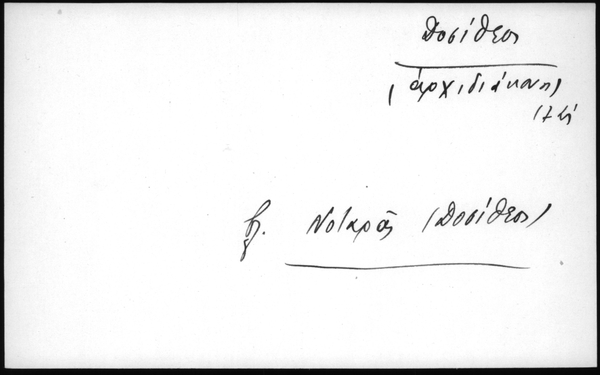 Δοσίθεος
(ἀρχιδιάκονος)
βλ. Νοταρᾶς (Δοσίθεος)